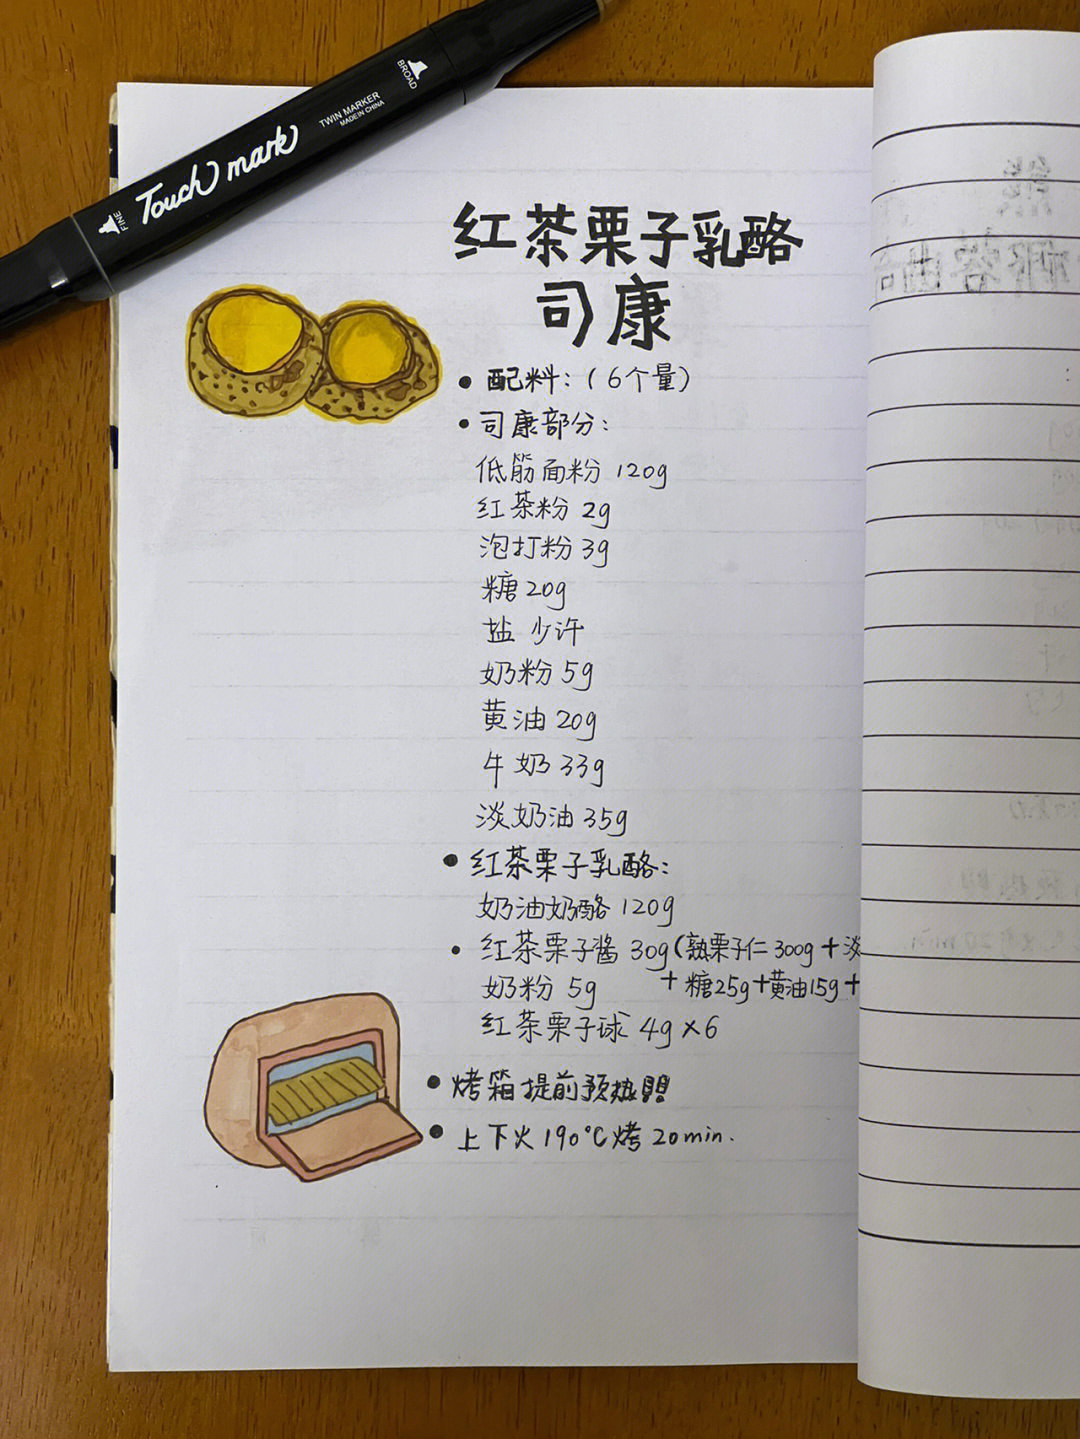 BROAD
TWIN MARKER
MADE IN CHINA
Touch mark
FINE
红茶栗子乳酪
司康
• 配料：（6个量）
• 司康部分：
低筋面粉 120g
红茶粉 2g
泡打粉 3g
糖 20g
盐 少许
奶粉 5g
黄油 20g
牛奶 33g
淡奶油 35g
• 红茶栗子乳酪：
奶油奶酪 120g
• 红茶栗子酱 30g(熟栗子仁 300g + 淡
奶粉 5g + 糖25g+黄油15g+
红茶栗子球 4g×6
• 烤箱提前预热
• 上下火 190℃烤 20min.